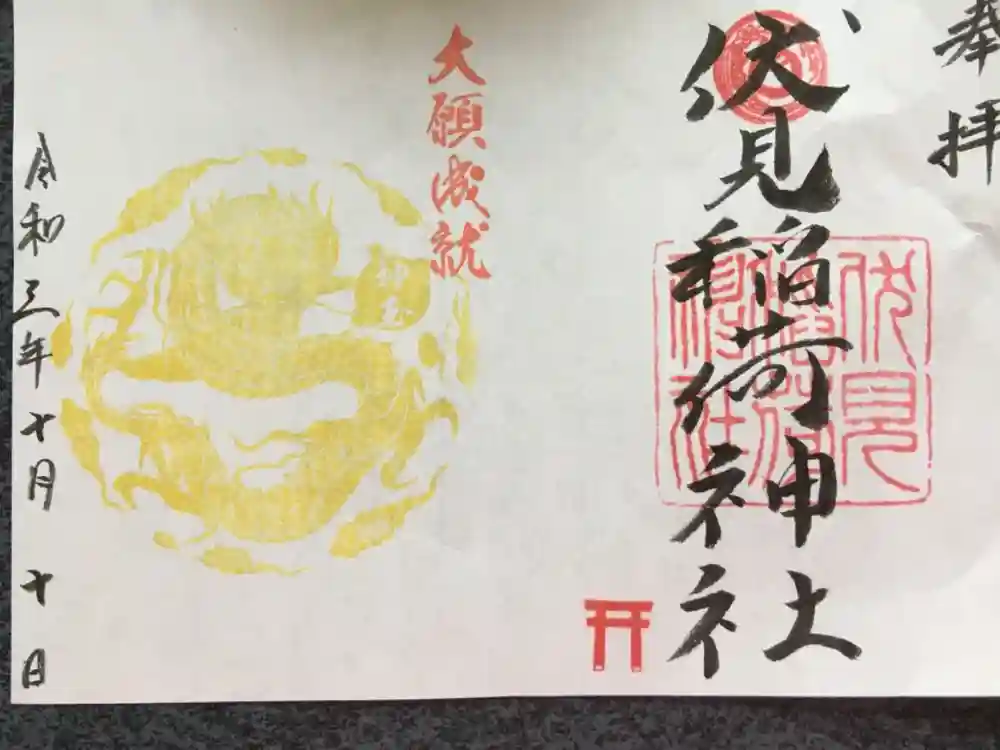 奉拝
伏見稲荷神社
伏見
稲荷
神社
大願成就
令和三年十月十日